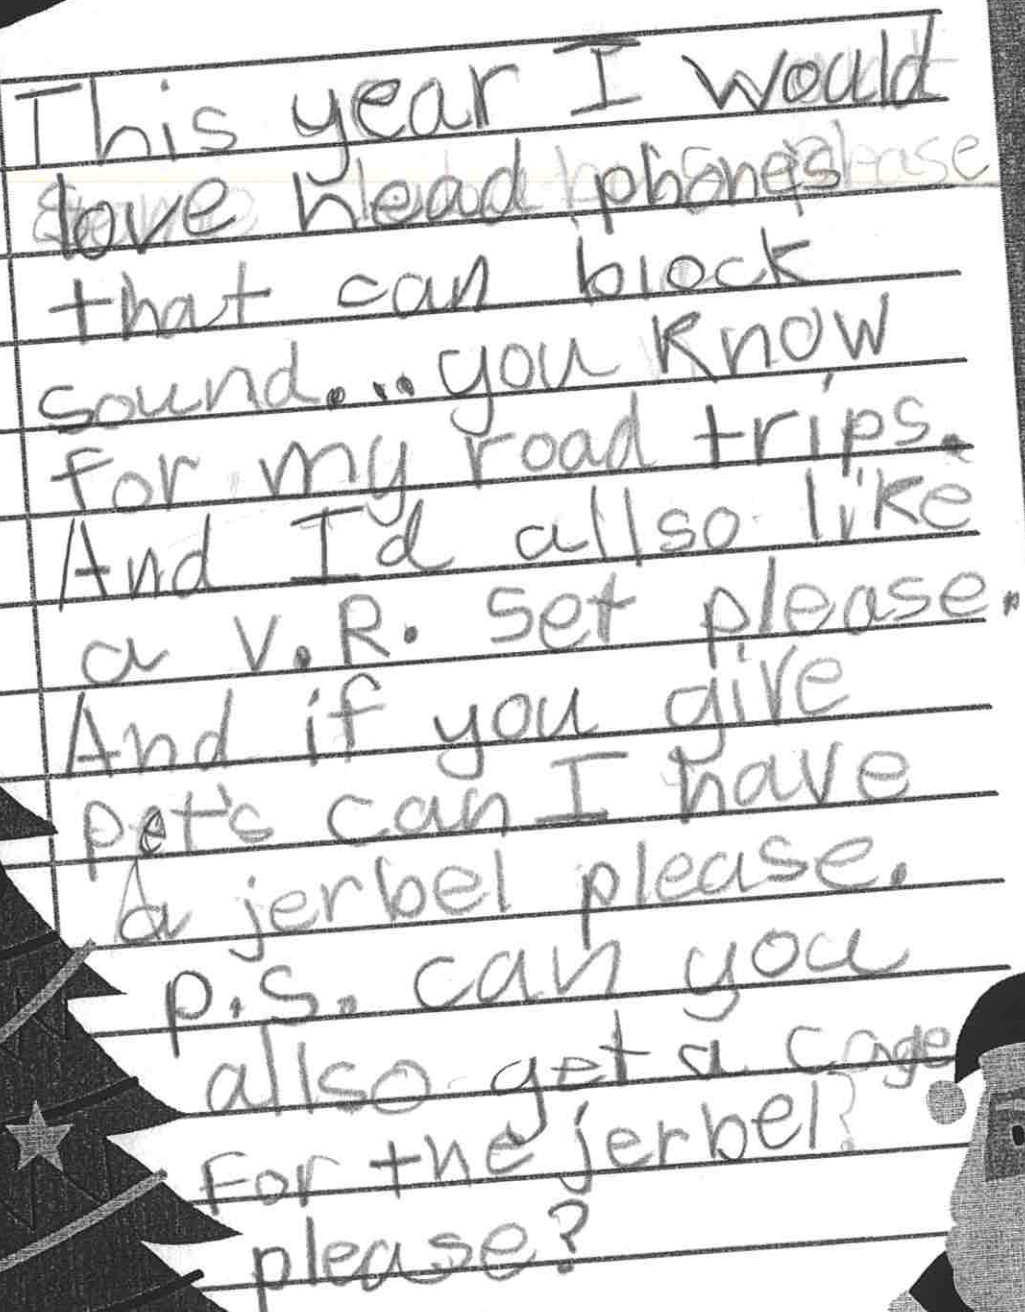 This year I would
love head phones
that can block
sound... you know
for my road trips.
And I'd allso like
a V.R. set please.
And if you give
pet's can I have
a jerbel please.
p.s. can you
allso get a cage
For the jerbel?
please?